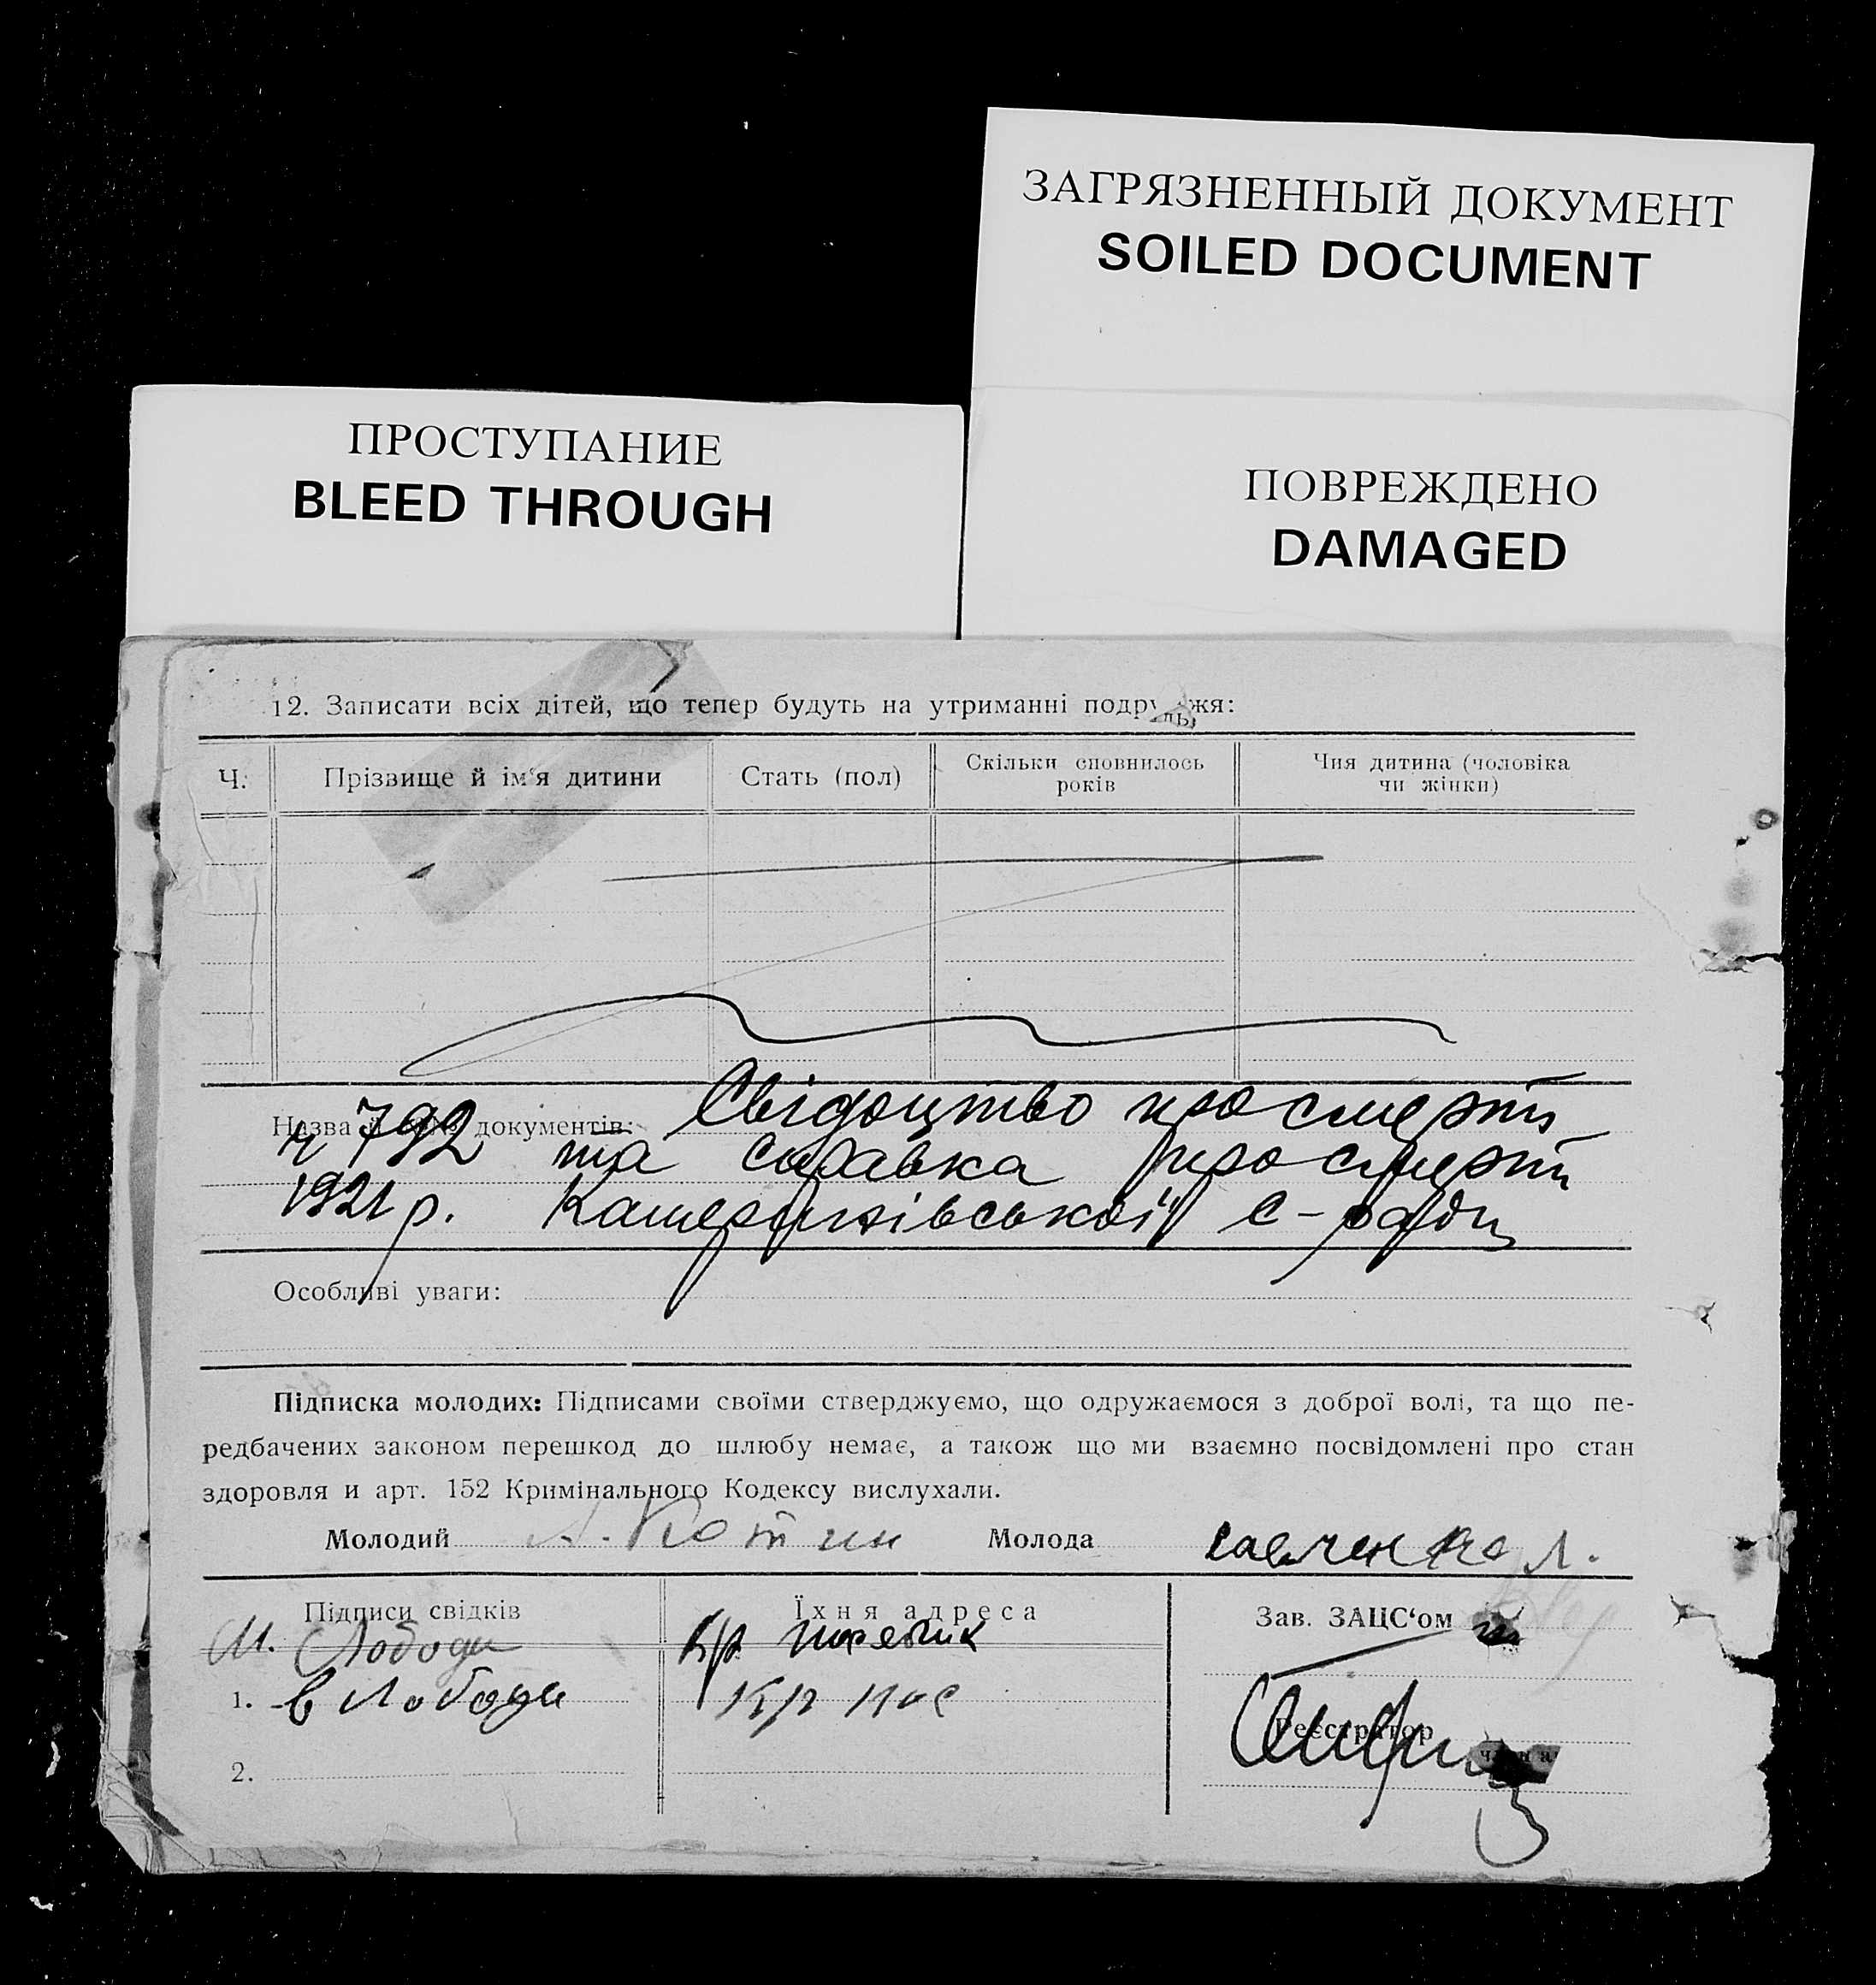 ЗАГРЯЗНЕННЫЙ ДОКУМЕНТ
SOILED DOCUMENT
ПРОСТУПАНИЕ
BLEED THROUGH
ПОВРЕЖДЕНО
DAMAGED
12. Записати всіх дітей, що тепер будуть на утриманні подружжя:
Ч. Прізвище й ім'я дитини Стать (пол) Скільки сповнилось років Чия дитина (чоловіка чи жінки)
Назва й документів: Свідоцтво про смерть
ч 792 та справка про смерть
1921 р. с-ради
Особливі уваги:
Підписка молодих: Підписами своїми стверджуємо, що одружаємося з доброї волі, та що пе-
редбачених законом перешкод до шлюбу немає, а також що ми взаємно посвідомлені про стан
здоровля и арт. 152 Кримінального Кодексу вислухали.
Молодий Молода Савченко Л.
Підписи свідків Їхня адреса Зав. ЗАЦС‘ом
М. Лобода Кр.
1. в Лобода Кр пос
Реєстратор
2.